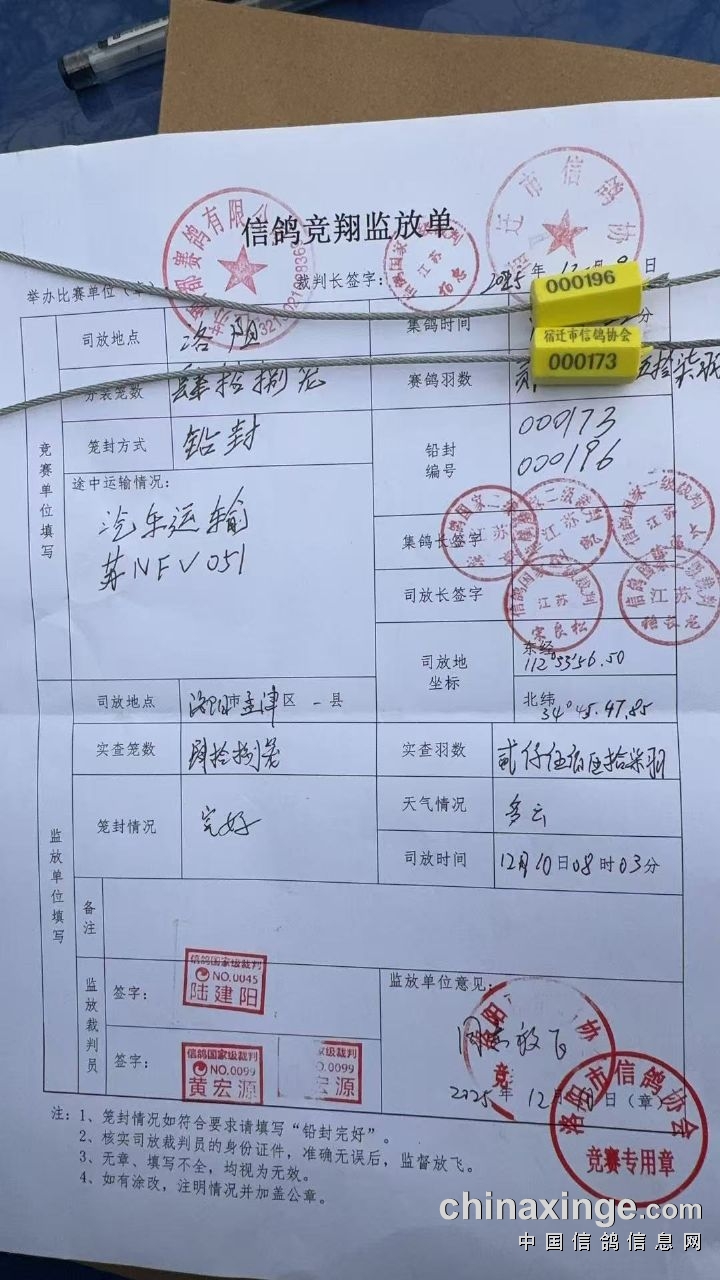 信鸽竞翔监放单
举办比赛单位（章）
裁判长签字：
2025年12月9日
司放地点
洛阳
集鸽时间
分
000196
宿迁市信鸽协会
000173
分装笼数
肆拾捌笼
赛鸽羽数
贰
五拾柒羽
笼封方式
铅封
铅封编号
000173
000196
竞赛单位填写
途中运输情况：
汽车运输
苏NFV051
集鸽长签字
司放长签字
江苏
宋良松
司放地坐标
东经
112°33'56.50
北纬
34°45.47.85
监放单位填写
司放地点
洛阳市孟津区 - 县
实查笼数
肆拾捌笼
实查羽数
贰仟伍佰伍拾柒羽
笼封情况
完好
天气情况
多云
司放时间
12月10日08时03分
备注
监放裁判员
签字：
信鸽国家级裁判
NO.0045
陆建阳
签字：
信鸽国家级裁判
NO.0099
黄宏源
级裁判
NO.0099
宏源
监放单位意见：
同意放飞
2025年12月10日（章）
洛阳市信鸽协会
竞赛专用章
注：1、笼封情况如符合要求请填写“铅封完好”。
2、核实司放裁判员的身份证件，准确无误后，监督放飞。
3、无章、填写不全，均视为无效。
4、如有涂改，注明情况并加盖公章。
chinaxinge.com
中国信鸽信息网